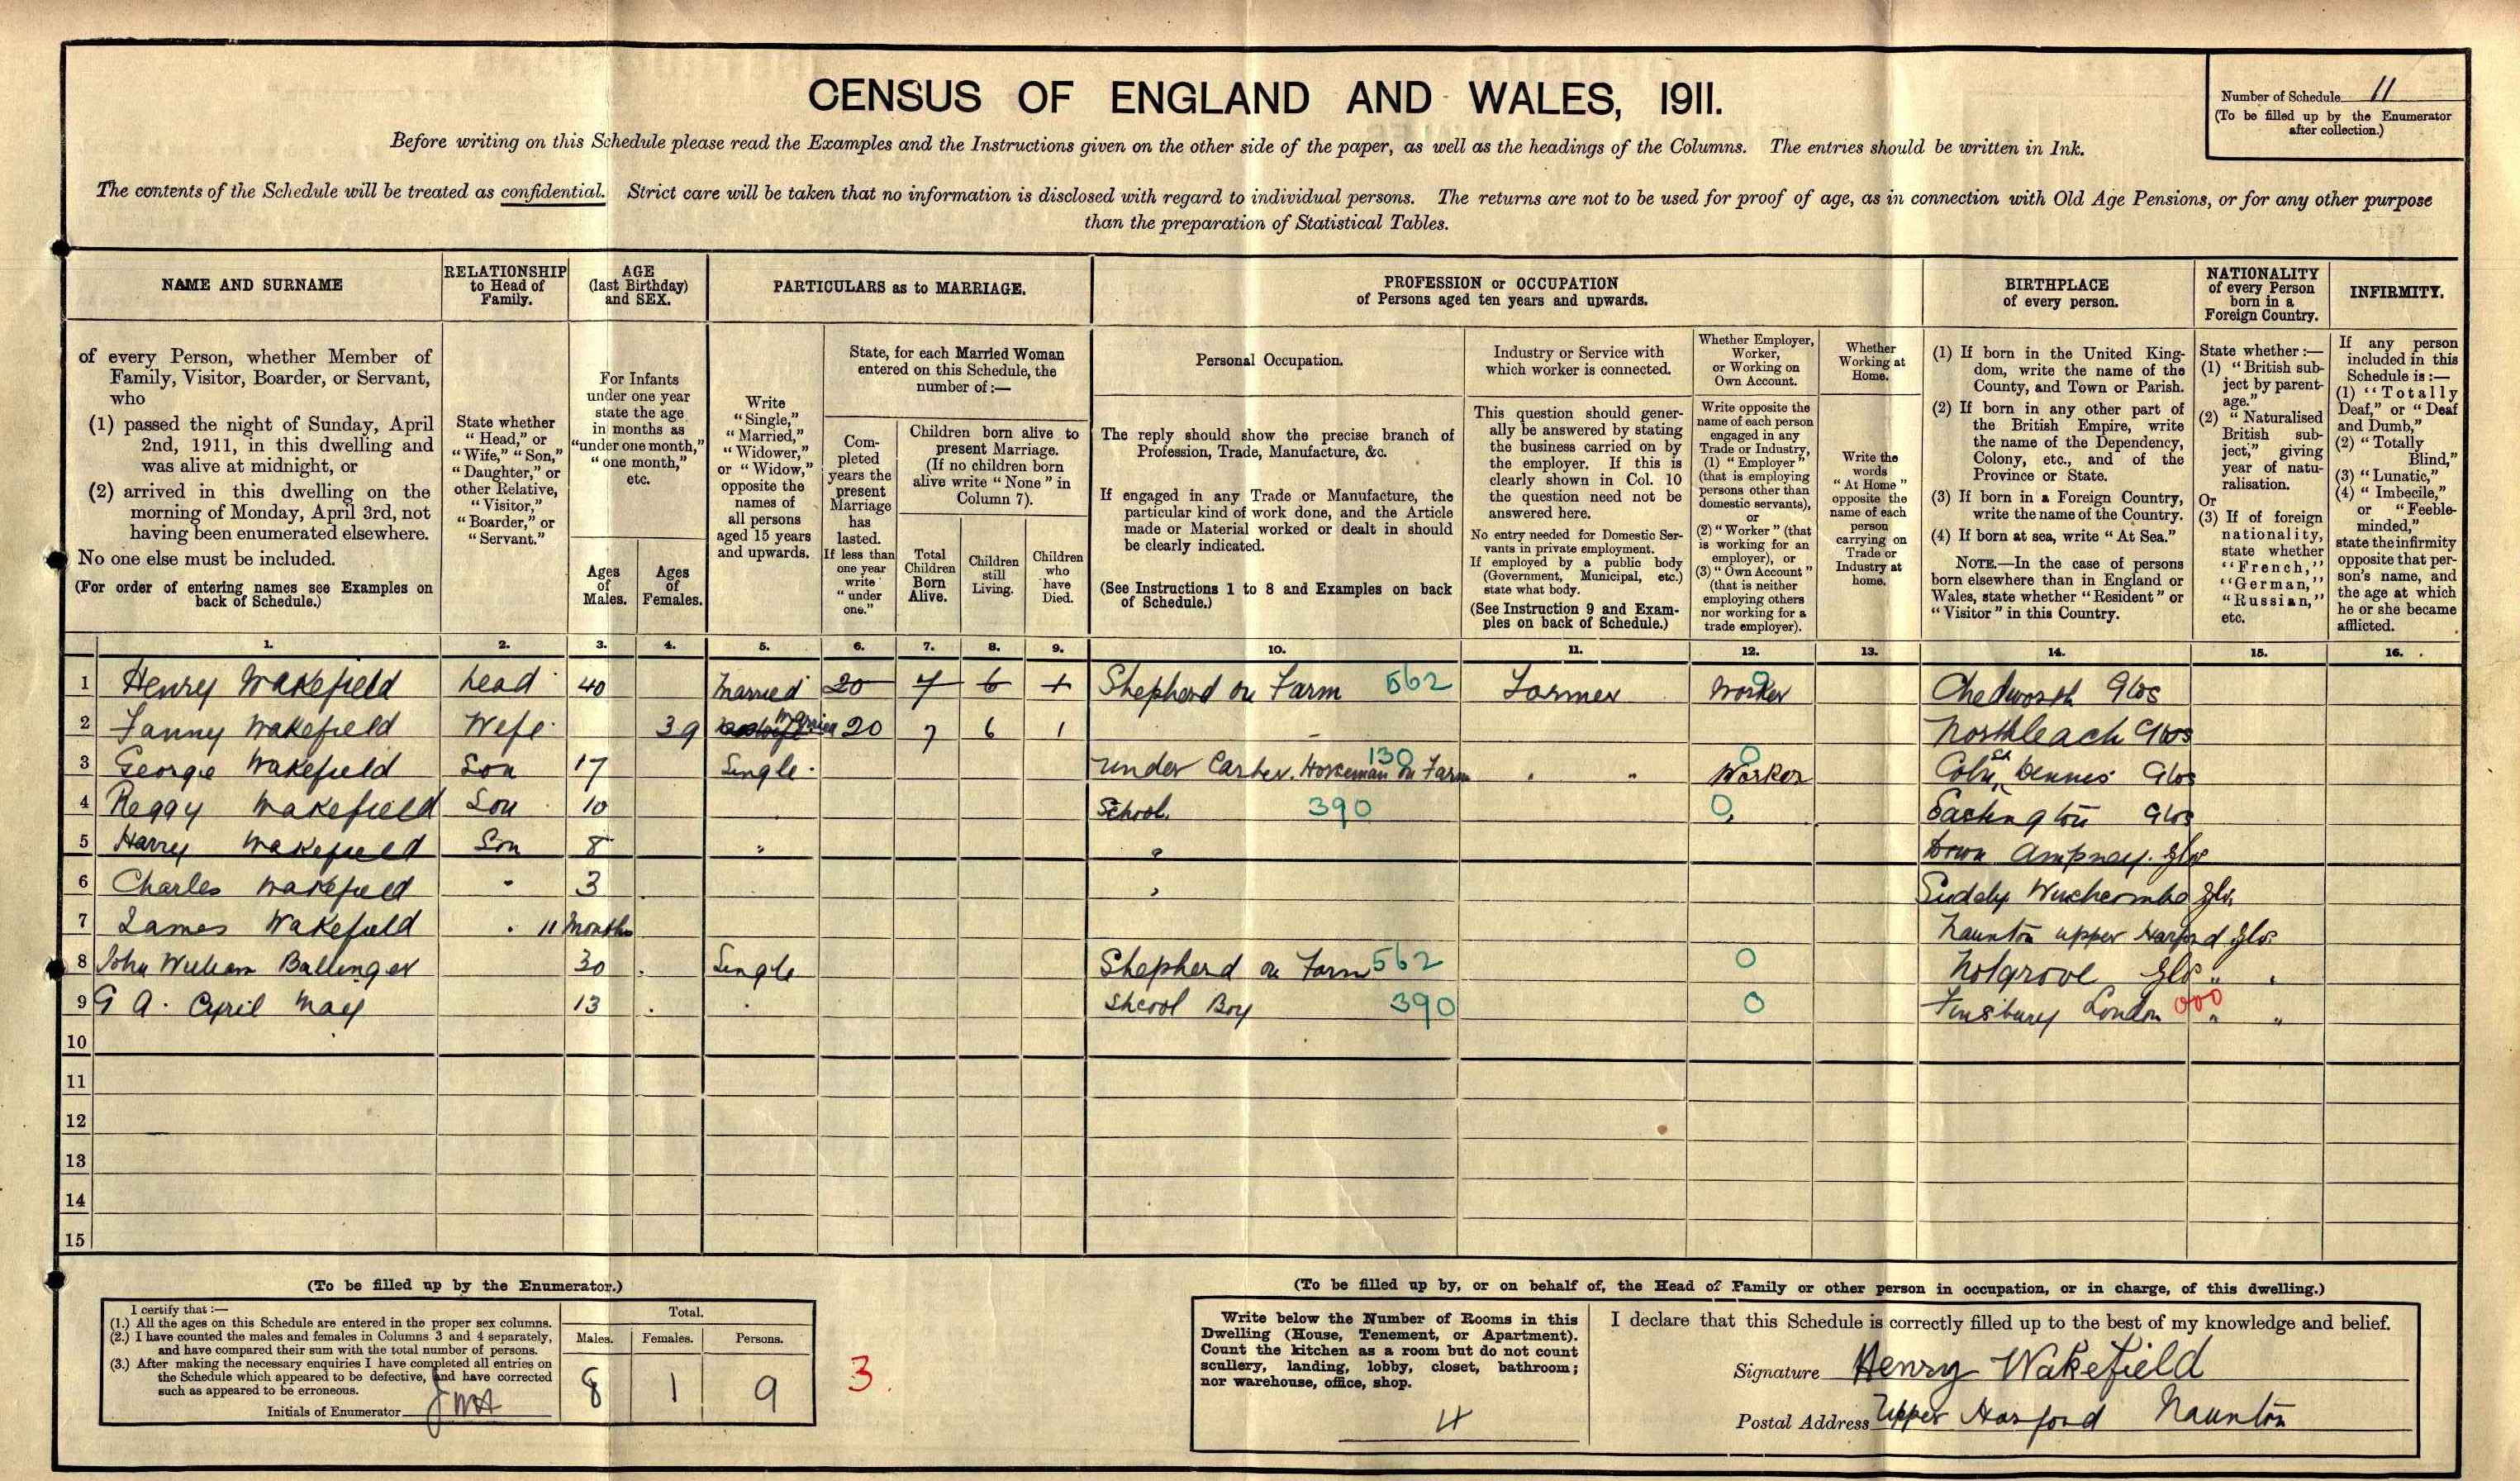 CENSUS OF ENGLAND AND WALES, 1911.
Number of Schedule 11
(To be filled up by the Enumerator
after collection.)
Before writing on this Schedule please read the Examples and the Instructions given on the other side of the paper, as well as the headings of the Columns. The entries should be written in Ink.
The contents of the Schedule will be treated as confidential. Strict care will be taken that no information is disclosed with regard to individual persons. The returns are not to be used for proof of age, as in connection with Old Age Pensions, or for any other purpose
than the preparation of Statistical Tables.
NAME AND SURNAME
of every Person, whether Member of
Family, Visitor, Boarder, or Servant,
who
(1) passed the night of Sunday, April
2nd, 1911, in this dwelling and
was alive at midnight, or
(2) arrived in this dwelling on the
morning of Monday, April 3rd, not
having been enumerated elsewhere.
No one else must be included.
(For order of entering names see Examples on
back of Schedule.)
RELATIONSHIP
to Head of
Family.
State whether
"Head," or
"Wife," "Son,"
"Daughter," or
other Relative,
"Visitor,"
"Boarder," or
"Servant."
AGE
(last Birthday)
and SEX.
For Infants
under one year
state the age
in months as
"under one month,"
"one month,"
etc.
Ages
of
Males.
Ages
of
Females.
PARTICULARS as to MARRIAGE.
Write
"Single,"
"Married,"
"Widower,"
or "Widow,"
opposite the
names of
all persons
aged 15 years
and upwards.
State, for each Married Woman
entered on this Schedule, the
number of:—
Com-
pleted
years the
present
Marriage
has
lasted.
If less than
one year
write
"under
one."
Children born alive to
present Marriage.
(If no children born
alive write "None" in
Column 7).
Total
Children
Born
Alive.
Children
still
Living.
Children
who
have
Died.
PROFESSION or OCCUPATION
of Persons aged ten years and upwards.
Personal Occupation.
The reply should show the precise branch of
Profession, Trade, Manufacture, &c.
If engaged in any Trade or Manufacture, the
particular kind of work done, and the Article
made or Material worked or dealt in should
be clearly indicated.
(See Instructions 1 to 8 and Examples on back
of Schedule.)
Industry or Service with
which worker is connected.
This question should gener-
ally be answered by stating
the business carried on by
the employer. If this is
clearly shown in Col. 10
the question need not be
answered here.
No entry needed for Domestic Ser-
vants in private employment.
If employed by a public body
(Government, Municipal, etc.)
state what body.
(See Instruction 9 and Exam-
ples on back of Schedule.)
Whether Employer,
Worker,
or Working on
Own Account.
Write opposite the
name of each person
engaged in any
Trade or Industry,
(1) "Employer"
(that is employing
persons other than
domestic servants),
or
(2) "Worker" (that
is working for an
employer), or
(3) "Own Account"
(that is neither
employing others
nor working for a
trade employer).
Whether
Working at
Home.
Write the
words
"At Home"
opposite the
name of each
person
carrying on
Trade or
Industry at
home.
BIRTHPLACE
of every person.
(1) If born in the United King-
dom, write the name of the
County, and Town or Parish.
(2) If born in any other part of
the British Empire, write
the name of the Dependency,
Colony, etc., and of the
Province or State.
(3) If born in a Foreign Country,
write the name of the Country.
(4) If born at sea, write "At Sea."
NOTE.—In the case of persons
born elsewhere than in England or
Wales, state whether "Resident" or
"Visitor" in this Country.
NATIONALITY
of every Person
born in a
Foreign Country.
State whether:—
(1) "British sub-
ject by parent-
age."
(2) "Naturalised
British sub-
ject," giving
year of natu-
ralisation.
Or
(3) If of foreign
nationality,
state whether
"French,"
"German,"
"Russian,"
etc.
INFIRMITY.
If any person
included in this
Schedule is:—
(1) "Totally
Deaf," or "Deaf
and Dumb,"
(2) "Totally
Blind,"
(3) "Lunatic,"
(4) "Imbecile,"
or "Feeble-
minded,"
state the infirmity
opposite that per-
son's name, and
the age at which
he or she became
afflicted.
1. 2. 3. 4. 5. 6. 7. 8. 9. 10. 11. 12. 13. 14. 15. 16.
1 Henry Wakefield head 40 Married 20 7 6 1 Shepherd on Farm 562 Farmer Worker 0 Chedworth Glos
2 Fanny Wakefield Wefe 39 Married 20 7 6 1 — Northleach Glos
3 George Wakefield Son 17 Single Under Carter. Horseman on Farm 130 " " Worker 0 Coln St Dennis Glos
4 Reggy Wakefield Son 10 School 390 0 Eastington Glos
5 Harry Wakefield Son 8 " " Down Ampney. Glos
6 Charles Wakefield " 3 " Sudely Winchcombe Glos
7 James Wakefield " 11 Months Naunton upper Harford Glos
8 John William Ballinger 30 Single Shepherd on Farm 562 0 Notgrove Glos " "
9 G A. Cyril May 13 " Shcool Boy 390 0 Finsbury London 000 " "
10
11
12
13
14
15
(To be filled up by the Enumerator.)
I certify that:—
(1.) All the ages on this Schedule are entered in the proper sex columns.
(2.) I have counted the males and females in Columns 3 and 4 separately,
and have compared their sum with the total number of persons.
(3.) After making the necessary enquiries I have completed all entries on
the Schedule which appeared to be defective, and have corrected
such as appeared to be erroneous.
Initials of Enumerator
Total.
Males. Females. Persons.
8 1 9
3.
(To be filled up by, or on behalf of, the Head of Family or other person in occupation, or in charge, of this dwelling.)
Write below the Number of Rooms in this
Dwelling (House, Tenement, or Apartment).
Count the kitchen as a room but do not count
scullery, landing, lobby, closet, bathroom;
nor warehouse, office, shop.
4
I declare that this Schedule is correctly filled up to the best of my knowledge and belief.
Signature Henry Wakefield
Postal Address Upper Harford Naunton